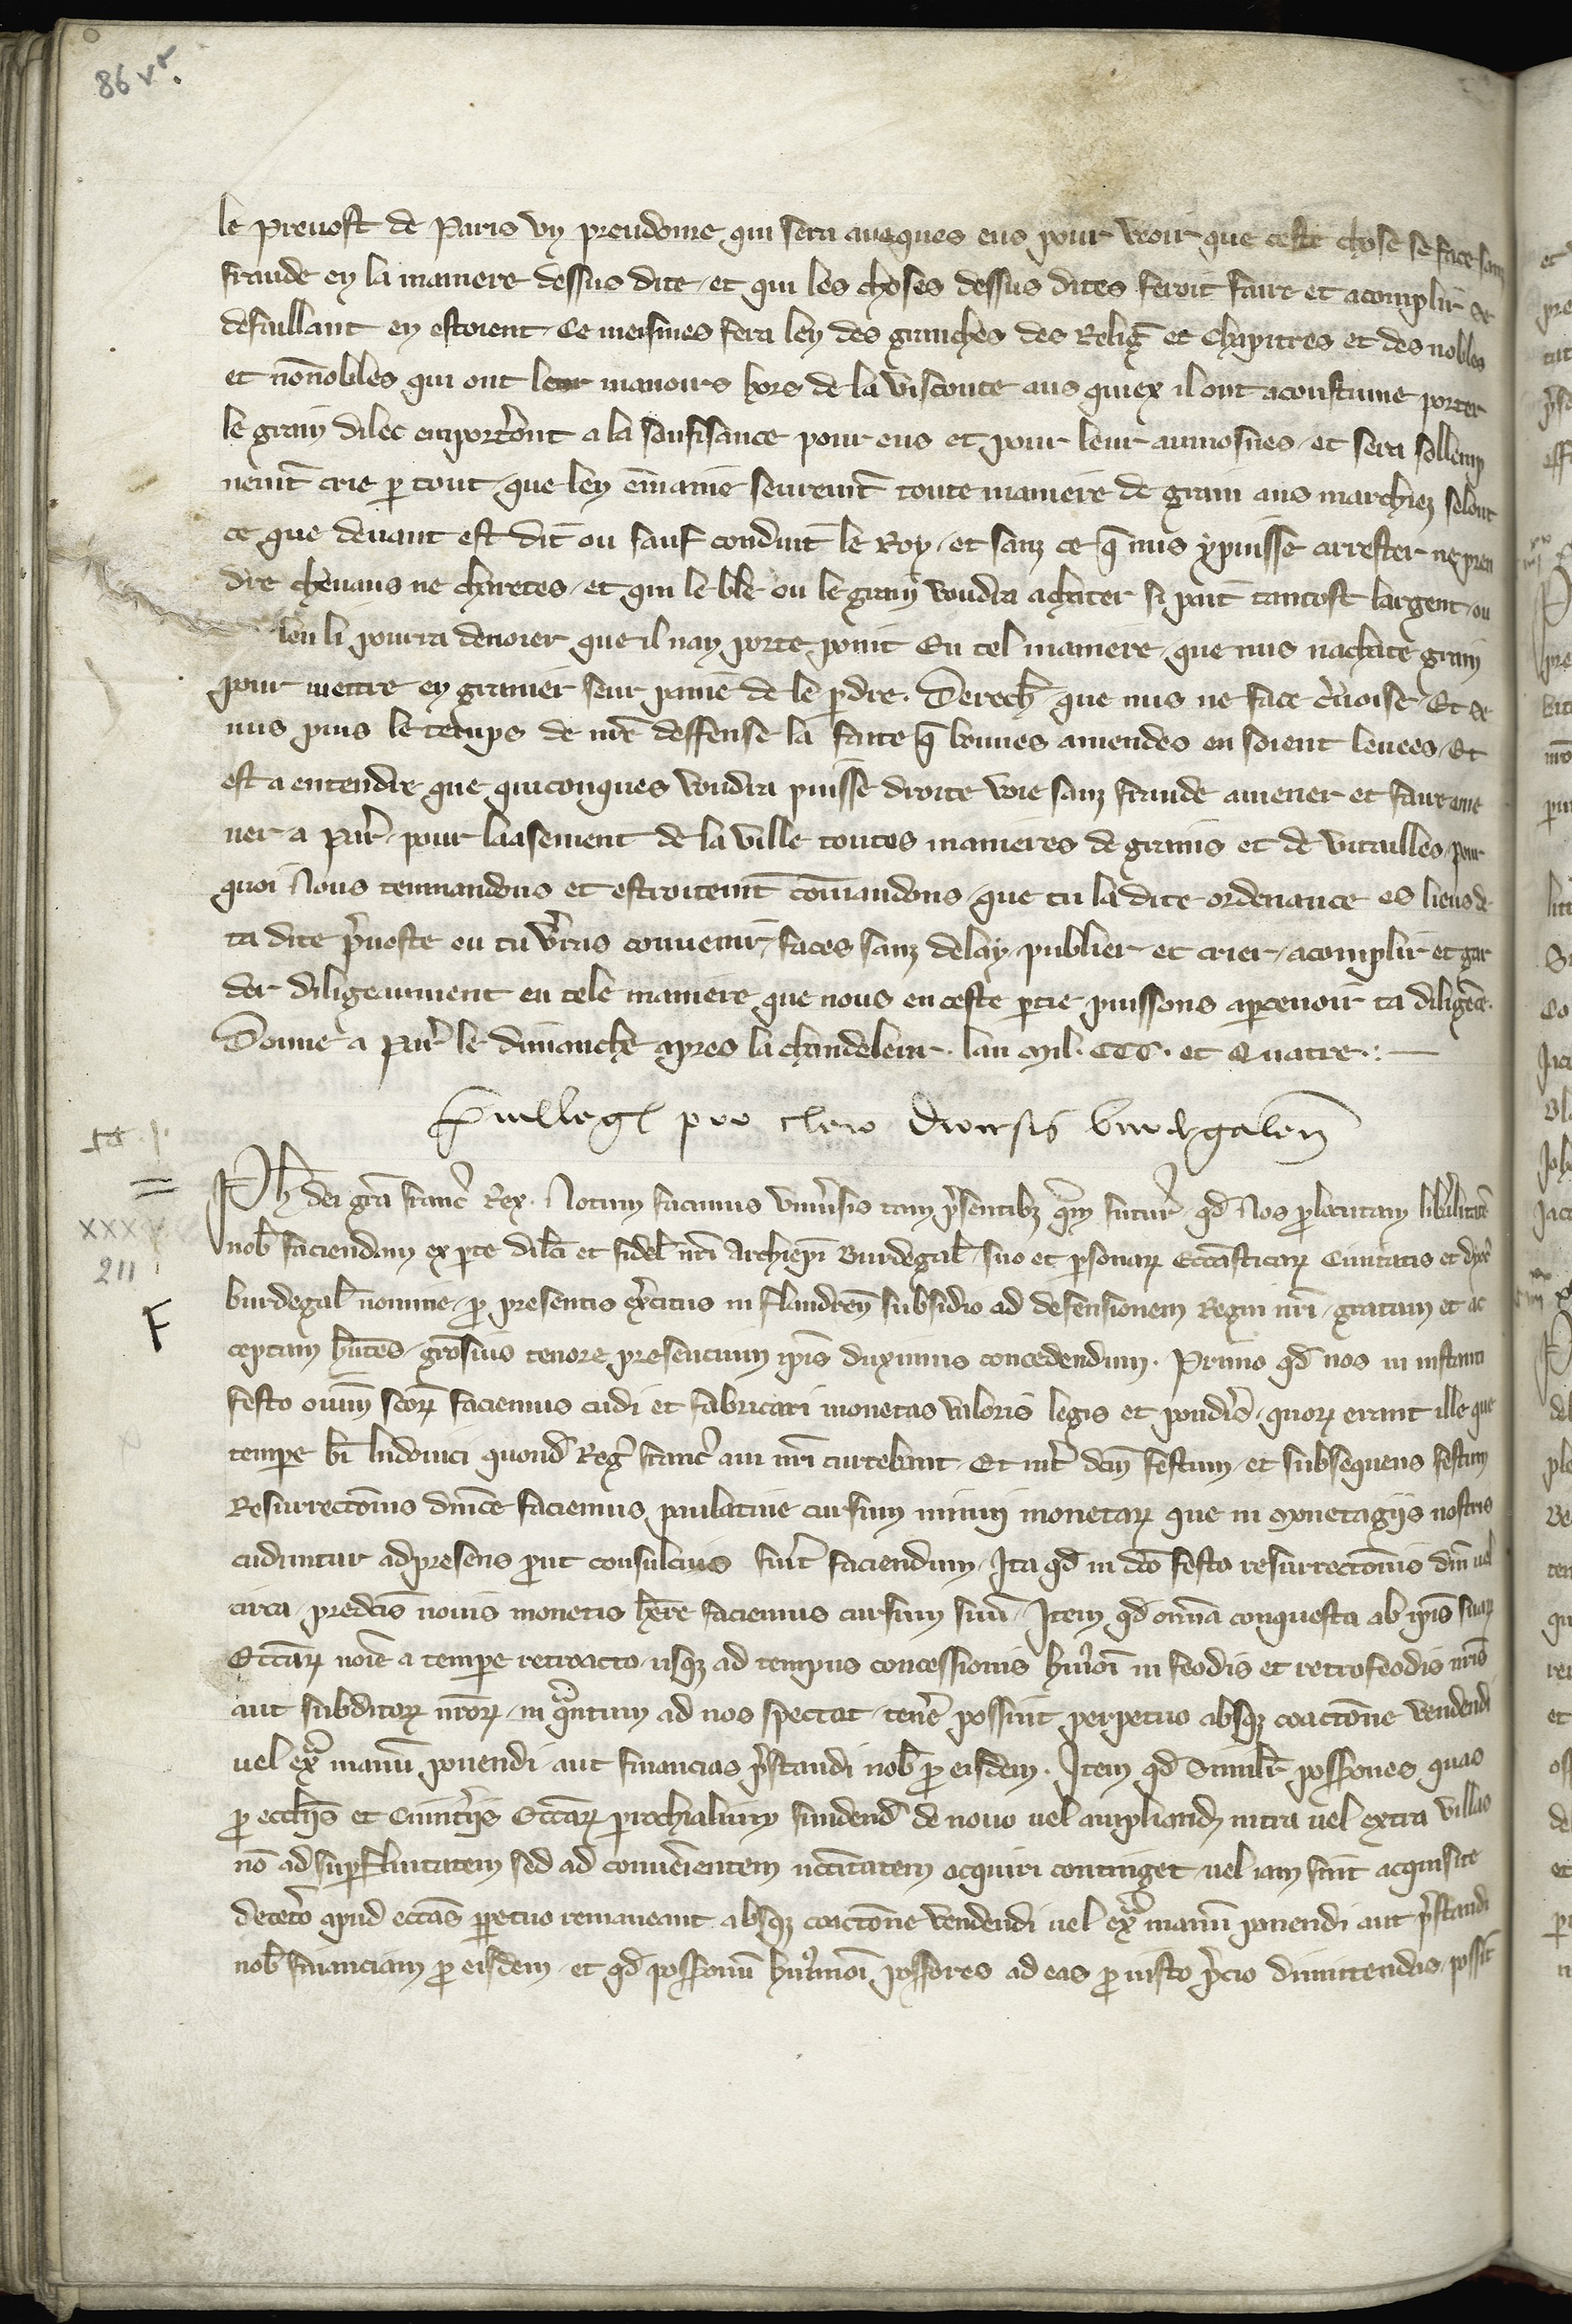 86 vº.
le prevost de Paris un preudome qui sera aveques eus pour veoir que ceste chose se face sanz
fraude en la maniere dessus dite, et qui les choses dessus dites feroit faire et acomplir se
defaillant en estoient. Ce meismes fera len des granches des Relig̃ et Chapitres et des nobles
et nõnobles qui ont leur manoirs hors de la visconte aus quiex il ont acoustume porter
le grain dilec emport̾ont a la soufisance pour eus et pour leur aumosnes, et sera sollemp
nemẽt crie p tout, que len em̃anie seuremẽt toute maniere de grain aus marchiez selont
ce que devant est dit ou sauf conduit le Roy, et sanz ce q̃ nus y puisse arrester ne pren
dre chevaus ne charetes, et qui le ble ou le grain voudra achater si pait tantost largent, ou
len li pourra devoier que il nan porte point En tel maniere, que nus nachate grain
pour mettre en grenier seur paine de le p̱dre. Derech̾ que nus ne face c̾voise, Et se
nus puis le temps de nr̃e deffense la faite q̃ bonnes amendes en soient levees, Et
est a entendre que quiconques voudra puisse droite voie sanz fraude amener et faire ame
ner a Par̾, pour laasement de la ville toutes manieres de grains et de vitailles, pour
quoi Nous temandons et estroitemẽt com̃andons, que tu la dite ordenance es lieus de
ta dite p̾voste ou tu v̾ras convenir, faces sanz delay publier et crier, acomplir et gar
der diligeaument en tele maniere que nous en ceste p̱tie puissons apcevoir ta diligẽce.
Donne a Par̾ le dimanche apres la chandeleur. lan Mil. CCC. et Quatre.:—
P̾villeg̃ pro clero diocesis burdegaleñ
Ph̾ dei gr̃a franc̾ Rex. Notum facimus univ̾sis tam p̾sentibz q̃m futur̾ qd̾ Nos p̱locutam lib̾alitatẽ
nob̾ faciendam ex p̱te dilc̃i et fidel̾ nr̃i Archiep̃i Burdegal̾, suo et p̱sonarꝝ Ecc̃asticarꝝ Civitatis et dyoc̾
burdegal̾ nomine, ꝓ presentis ex̾citus in flandreñ subsidio ad defensionem Regni nr̃i, gratam et ac
ceptam hñtes, gr̃osius tenore presentium ip̃is duximus concedendum. Primo qd̾ nos in instanti
festo oñium sc̃orꝝ faciemus cudi et fabricari monetas valoris legis et pond̾is, quorꝝ erant ille que
tempe b̃i ludovici quond̾ Reg̾ franc̾ avi nr̃i currebant, Et int̾ dc̃um festum, et subsequens festum
Resurrectõis dñice faciemus paulative cursum minui monetarꝝ que in Monetagiis nostris
cuduntur adpresens ꝓut consultius fu̾it faciendum, Ita qd̾ in dc̃o festo resurrectõis dñi vel
circa, predc̃is novis monetis h̃ere faciemus cursum suũ, Item qd̾ om̃ia conquesta ab ip̃is suarꝝ
Ecc̃arꝝ noĩe a tempe retroacto, usqꝫ ad tempus concessionis hui̾oi in feodis et retrofeodis nr̃is
aut subditorꝝ nr̃orꝝ, in q̃ntum ad nos spectat, ten̾e possint perpetuo absqꝫ coactõne vendendi
vel ext̾ manũ ponendi aut financias p̾standi nob̾ ꝓ eisdem. Item qd̾ Simil̾r possões quas
ꝓ ecc̃liis et Cimit̾iis Ecc̃arꝝ p̱rochialium fundend̾ de novo vel ampliand̾ intra vel extra villas
nõ ad sup̱fluitatem sed ad conveñientem nec̃citatem acquiri continget, vel iam sunt acquisite
decet̾o apud ecc̃as p̱petuo remaneant absqꝫ coactõne vendendi vel ext̾ manũ ponendi aut p̾standi
nob̾ financiam ꝓ eisdem, et qd̾ possionũ hui̾moi possores ad eas ꝓ iusto p̾cio dimittendas possĩt
XXXV
211
F